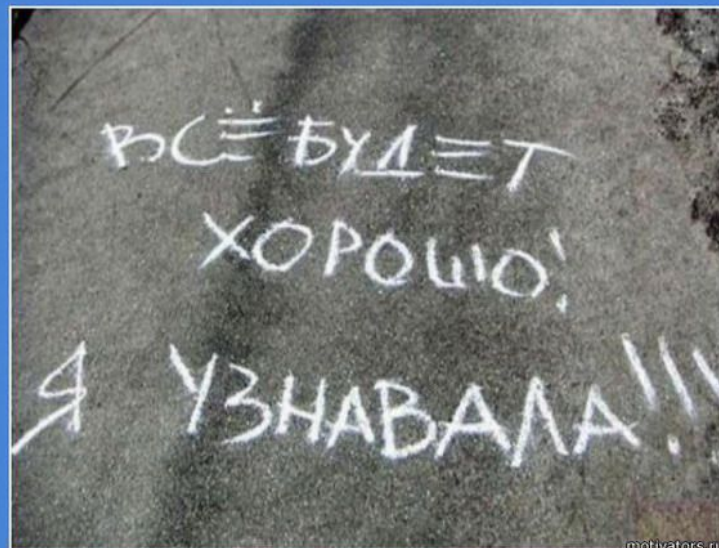 ВСЁ БУДЕТ
ХОРОШО!
Я УЗНАВАЛА!!!
motivators.ru